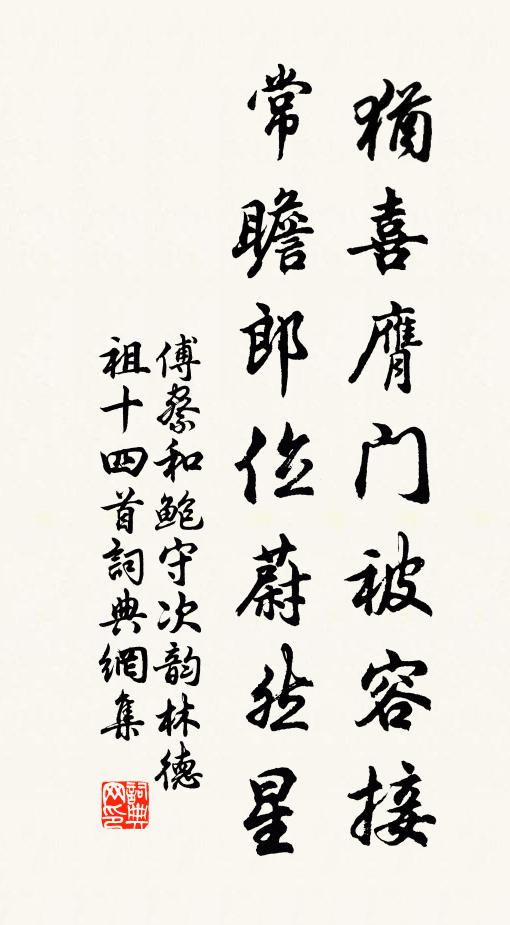 猶喜膺门被容接
常瞻郎位蔚然星
傅察和鲍守次韵林德
祖十四首詞典網集
詞典网印